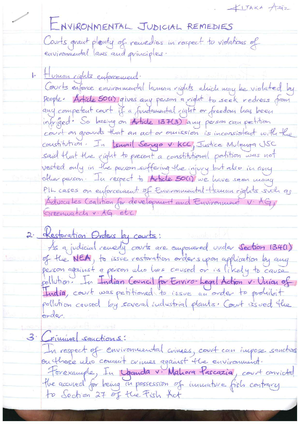 KITAKA AZIZ
ENVIRONMENTAL JUDICIAL REMEDIES
Courts grant plenty of remedies in respect to violations of
environmental laws and principles.
1. Human rights enforcement.
Courts enforce environmental human rights which may be violated by
people. Article 50(1) gives any person a right to seek redress from
any competent court if a fundamental right or freedom has been
infringed. So basing on Article 137(3) any person can petition
court on grounds that an act or omission is inconsistent with the
constitution. In Ismail Serugo v KCC, Justice Mulenga JSC
said that the right to present a constitutional petition was not
vested only in the person suffering the injury but also in any
other person. In respect to Article 50(2) we have seen many
PIL cases on enforcement of Environmental Human rights such as
Advocates Coalition for development and Environment v AG,
Greenwatch v AG etc.
2. Restoration Orders by courts:
As a judicial remedy courts are empowered under Section 134(1)
of the NEA, to issue restoration orders upon application by any
person against a person who has caused or is likely to cause
pollution. In Indian Council for Enviro-Legal Action v Union of
India, court was petitioned to issue an order to prohibit
pollution caused by several industrial plants. Court issued the
order.
3. Criminal sanctions:
In respect of environmental crimes, court can impose sanctions
on those who commit crimes against the environment.
For example, In Uganda v Mahera Pascazia, court convicted
the accused for being in possession of immature fish contrary
to Section 27 of the Fish Act